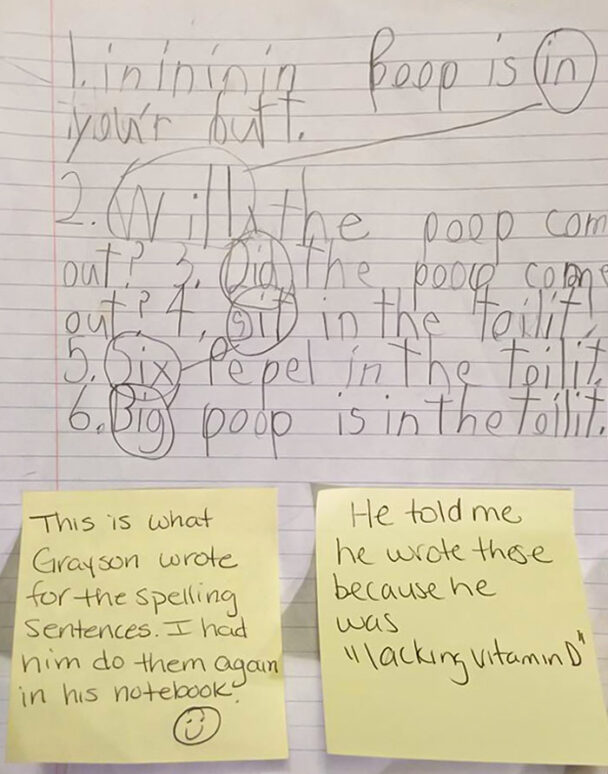 1. in in in in in Poop is in
your butt.
2. Will the poop com
out? 3. Did the poop come
out? 4. sit in the toilit!
5. Six Pepel in the toilit.
6. Big poop is in the toilit.
This is what
Grayson wrote
for the spelling
sentences. I had
him do them again
in his notebook.
He told me
he wrote these
because he
was
"lacking vitamin D"